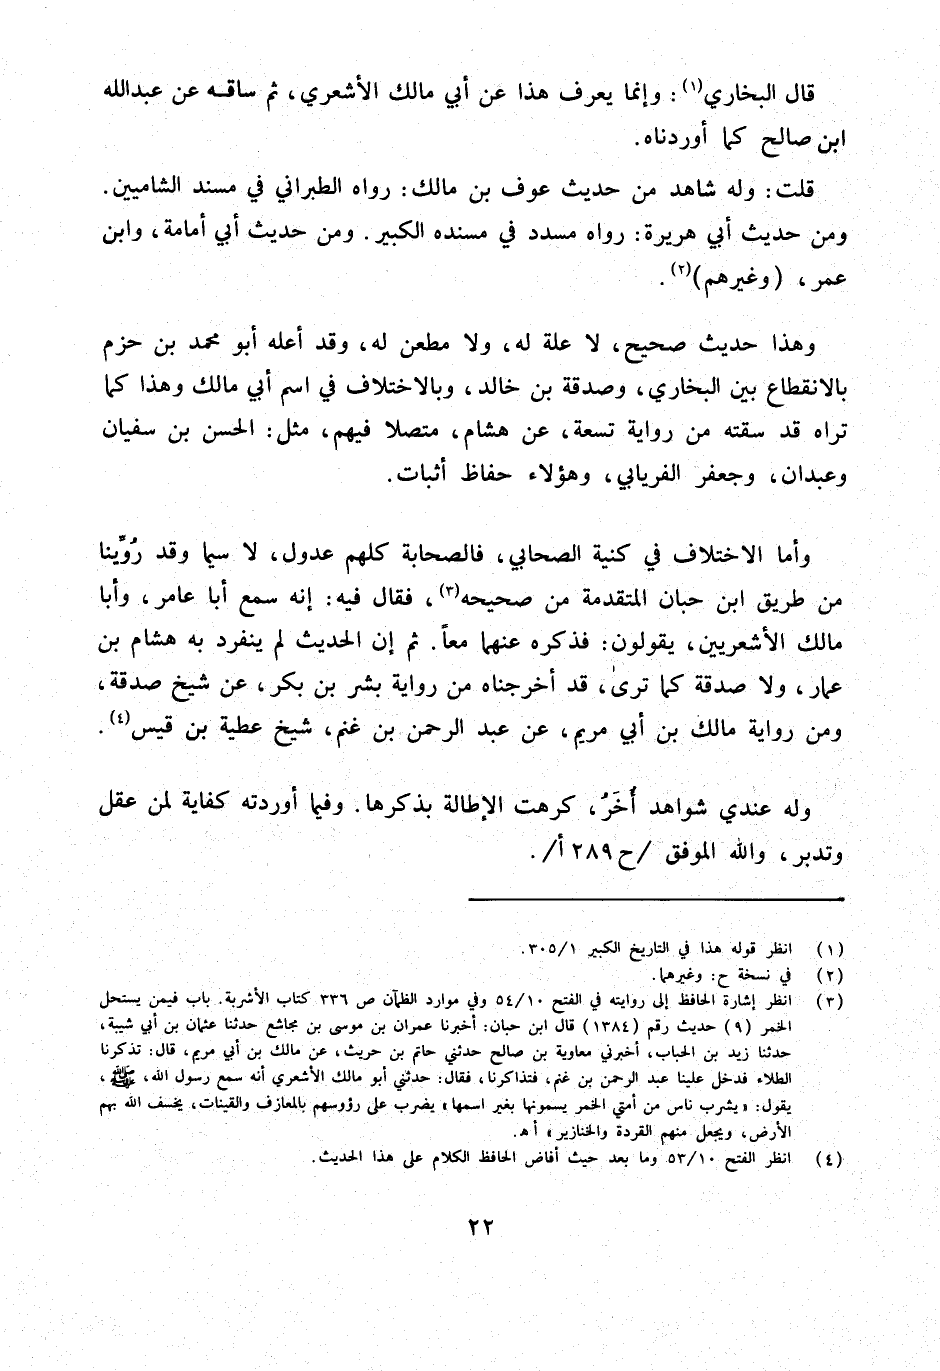 قال البخاري(١): وإنما يعرف هذا عن أبي مالك الأشعري، ثم ساقه عن عبدالله
ابن صالح كما أوردناه.
قلت: وله شاهد من حديث عوف بن مالك: رواه الطبراني في مسند الشاميين.
ومن حديث أبي هريرة: رواه مسدد في مسنده الكبير. ومن حديث أبي أمامة، وابن
عمر، (وغيرهم)(٢).
وهذا حديث صحيح، لا علة له، ولا مطعن له، وقد أعله أبو محمد بن حزم
بالانقطاع بين البخاري، وصدقة بن خالد، وبالاختلاف في اسم أبي مالك وهذا كما
تراه قد سقته من رواية تسعة، عن هشام، متصلا فيهم، مثل: الحسن بن سفيان
وعبدان، وجعفر الفريابي، وهؤلاء حفاظ أثبات.
وأما الاختلاف في كنية الصحابي، فالصحابة كلهم عدول، لا سيما وقد رُوِّينا
من طريق ابن حبان المتقدمة من صحيحه(٣)، فقال فيه: إنه سمع أبا عامر، وأبا
مالك الأشعريين، يقولون: فذكره عنهما معاً. ثم إن الحديث لم ينفرد به هشام بن
عمار، ولا صدقة كما ترىٰ، قد أخرجناه من رواية بشر بن بكر، عن شيخ صدقة،
ومن رواية مالك بن أبي مريم، عن عبد الرحمن بن غنم، شيخ عطية بن قيس(٤).
وله عندي شواهد أُخَرُ، كرهت الإطالة بذكرها. وفيما أوردته كفاية لمن عقل
وتدبر، والله الموفق /ح ٢٨٩ أ/.
(١) انظر قوله هذا في التاريخ الكبير ٣٠٥/١.
(٢) في نسخة ح: وغيرهما.
(٣) انظر إشارة الحافظ إلى روايته في الفتح ٥٤/١٠ وفي موارد الظمآن ص ٣٣٦ كتاب الأشربة. باب فيمن يستحل
الخمر (٩) حديث رقم (١٣٨٤) قال ابن حبان: أخبرنا عمران بن موسى بن مجاشع حدثنا عثمان بن أبي شيبة،
حدثنا زيد بن الحباب، أخبرني معاوية بن صالح حدثني حاتم بن حريث، عن مالك بن أبي مريم، قال: تذكرنا
الطلاء فدخل علينا عبد الرحمن بن غنم، فتذاكرنا، فقال: حدثني أبو مالك الأشعري أنه سمع رسول الله، ﷺ،
يقول: «يشرب ناس من أمتي الخمر يسمونها بغير اسمها» يضرب على رؤوسهم بالمعازف والقينات، يخسف الله بهم
الأرض، ويجعل منهم القردة والخنازير» أ هـ.
(٤) انظر الفتح ٥٣/١٠ وما بعد حيث أفاض الحافظ الكلام على هذا الحديث.
٢٢